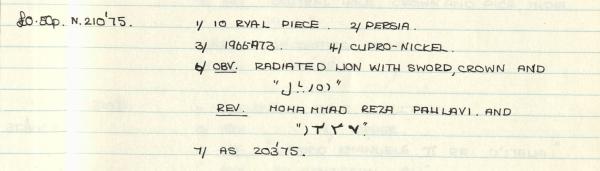 £0·50p. N. 210'75. 1/ 10 RYAL PIECE. 2/ PERSIA.
3/ 1965-73. 4/ CUPRO-NICKEL.
6/ OBV. RADIATED LION WITH SWORD, CROWN AND
REV. MOHAMMAD REZA PAHLAVI. AND
7/ AS 203'75.